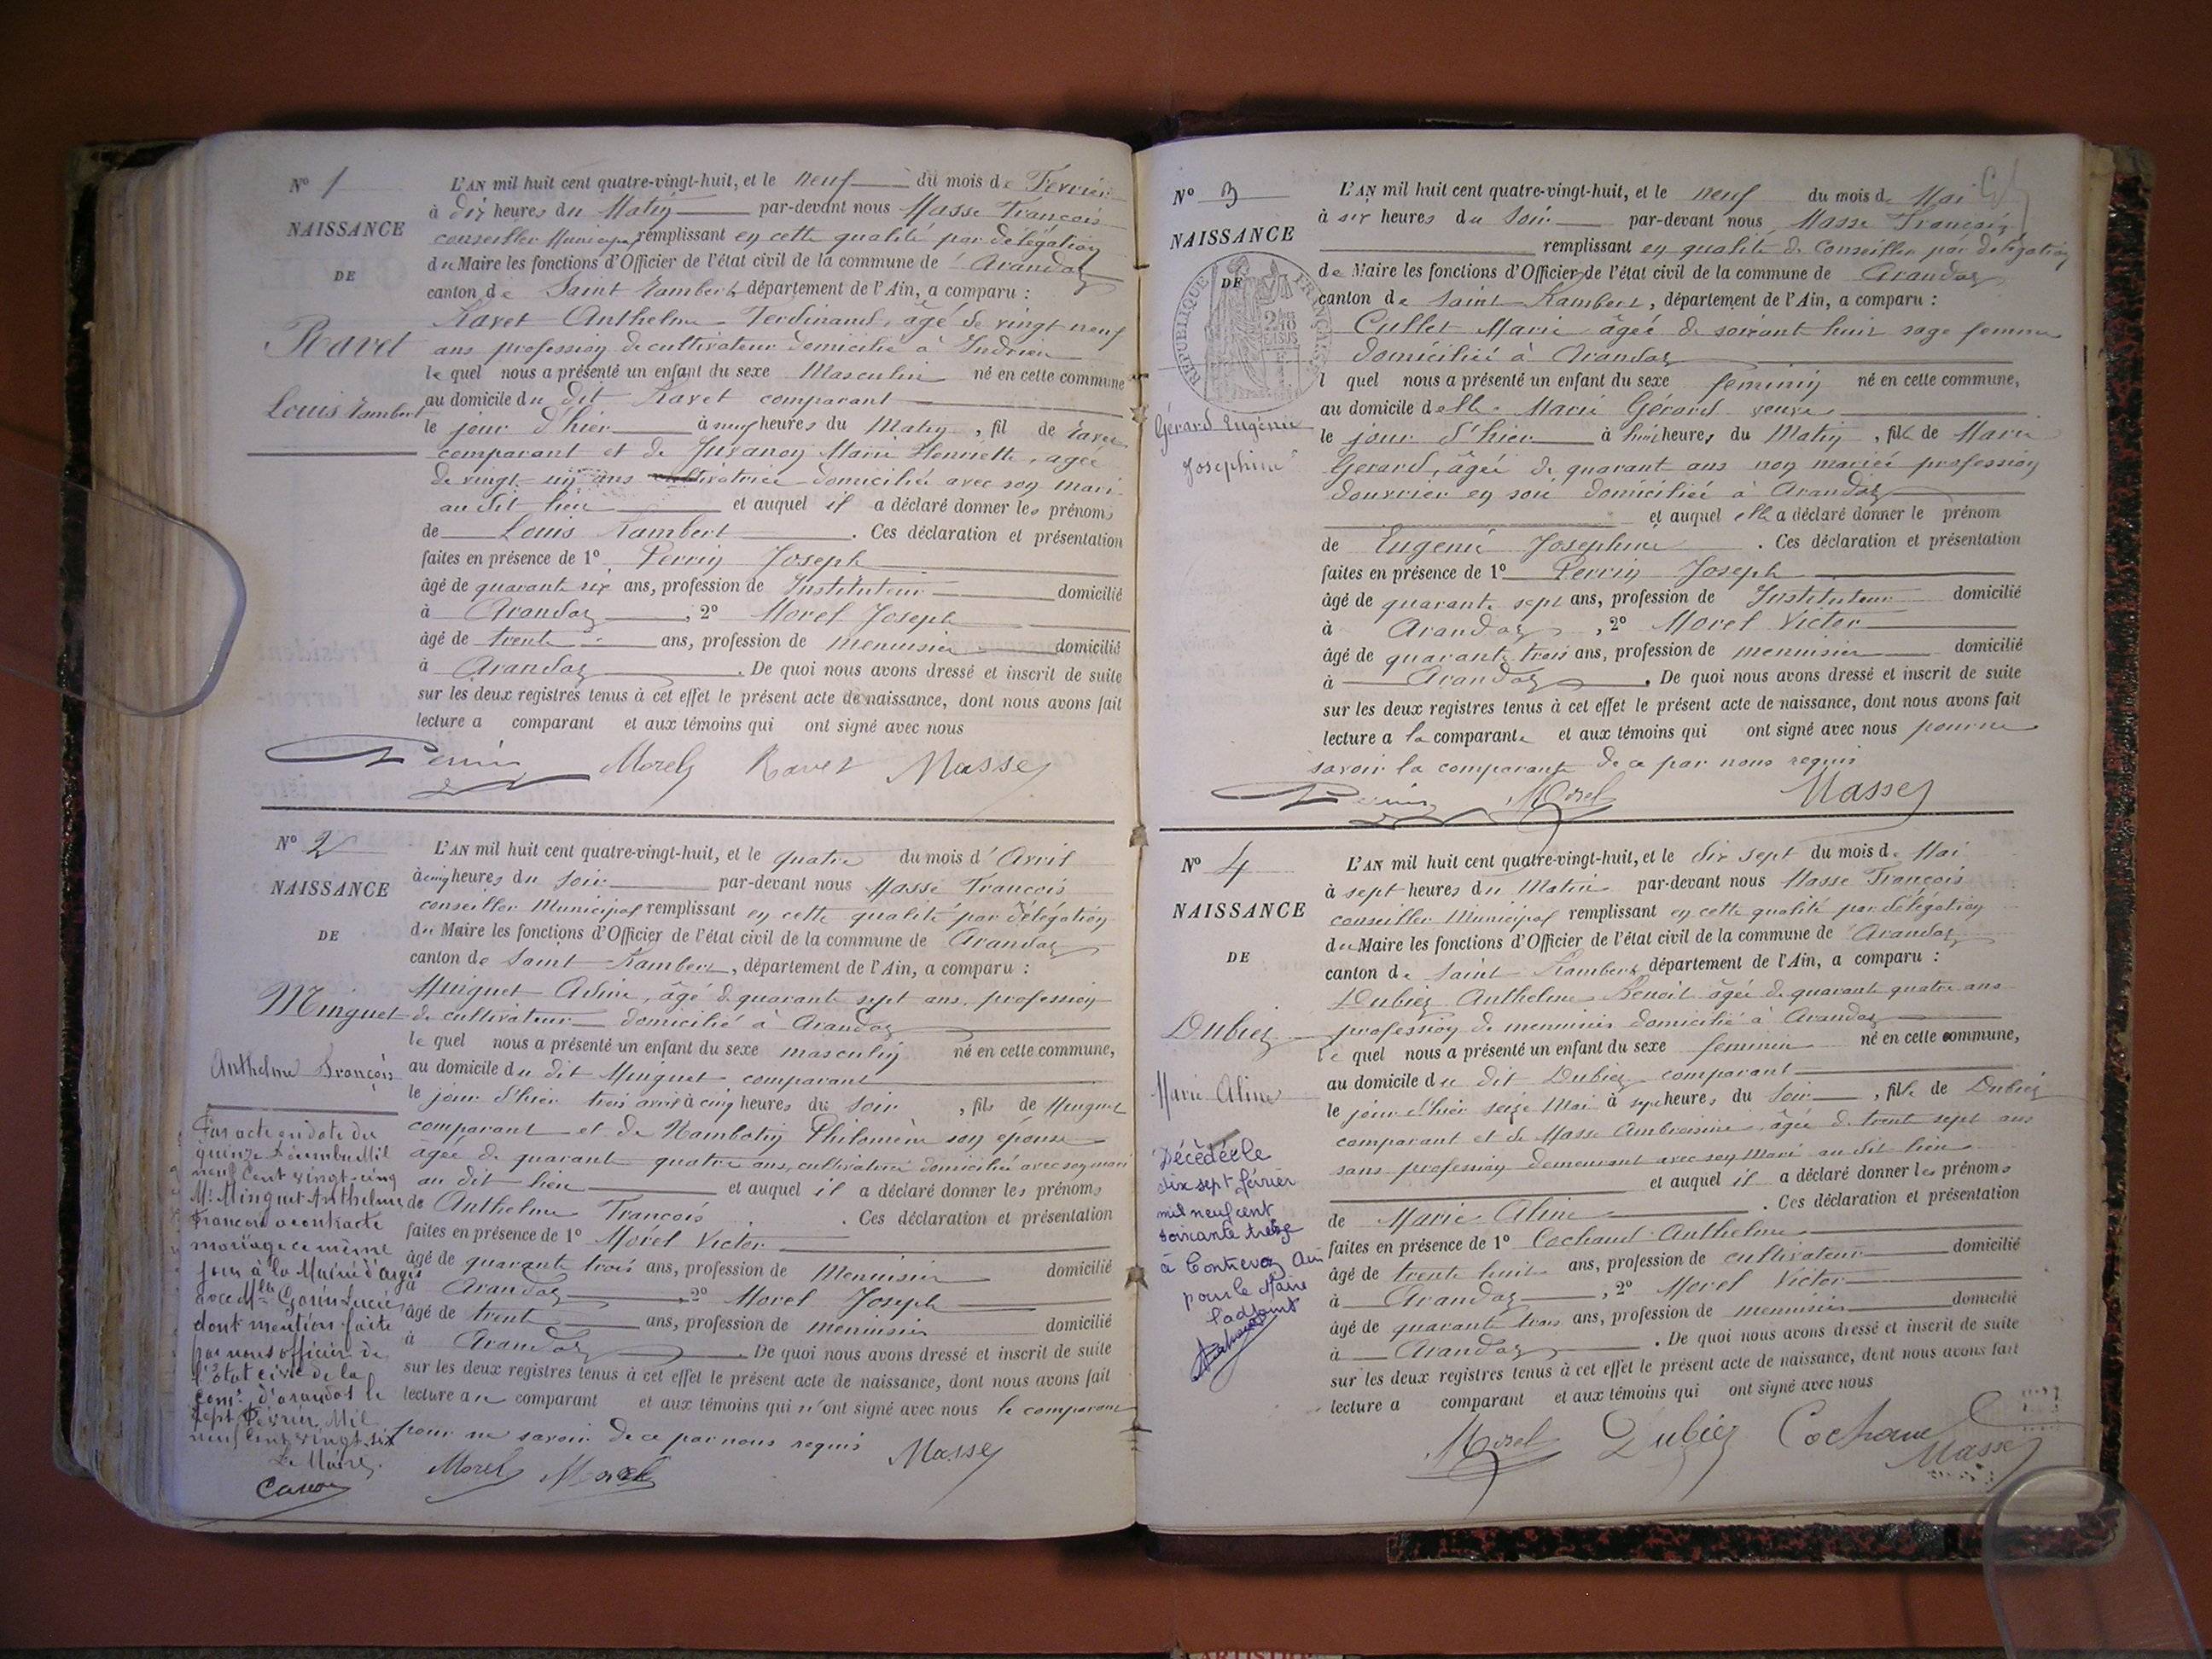 N° 1
NAISSANCE
DE
Ravet
Louis Rambert
L'AN mil huit cent quatre-vingt-huit, et le neuf du mois de Février
à dix heures du Matin par-devant nous Masse François
conseiller Municipal remplissant en cette qualité par délégation
du Maire les fonctions d'Officier de l'état civil de la commune de Arandas
canton de Saint Rambert, département de l'Ain, a comparu :
Ravet Anthelme Ferdinand, âgé de vingt neuf
ans profession de cultivateur domicilié à Indrieu
le quel nous a présenté un enfant du sexe Masculin né en cette commune
au domicile du dit Ravet comparant
le jour d'hier à neuf heures du Matin, fil de Ravet
comparant et de Juvanon Marie Henriette, agée
de vingt-un ans cultivatrice domiciliée avec son mari
au dit lieu et auquel il a déclaré donner les prénoms
de Louis Rambert. Ces déclaration et présentation
faites en présence de 1° Perrin Joseph
âgé de quarante six ans, profession de Instituteur domicilié
à Arandas, 2° Morel Joseph
âgé de trente ans, profession de menuisier domicilié
à Arandas. De quoi nous avons dressé et inscrit de suite
sur les deux registres tenus à cet effet le présent acte de naissance, dont nous avons fait
lecture a comparant et aux témoins qui ont signé avec nous
Perrin Morel Ravet Masse
N° 2
NAISSANCE
DE
Minguet
Anthelme François
L'AN mil huit cent quatre-vingt-huit, et le quatre du mois d'Avril
à cinq heures du soir par-devant nous Masse François
conseiller Municipal remplissant en cette qualité par délégation
du Maire les fonctions d'Officier de l'état civil de la commune de Arandas
canton de Saint Rambert, département de l'Ain, a comparu :
Minguet Adine, âgé de quarante sept ans, profession
de cultivateur domicilié à Arandas
le quel nous a présenté un enfant du sexe masculin né en cette commune,
au domicile du dit Minguet comparant
le jour d'hier trois avril à cinq heures du soir, fils de Minguet
comparant et de Nambotin Philomène son épouse
âgée de quarante quatre ans, cultivatrice domiciliée avec son mari
au dit lieu et auquel il a déclaré donner les prénoms
de Anthelme François. Ces déclaration et présentation
faites en présence de 1° Morel Victor
âgé de quarante trois ans, profession de Menuisier domicilié
à Arandas, 2° Morel Joseph
âgé de trente ans, profession de menuisier domicilié
à Arandas. De quoi nous avons dressé et inscrit de suite
sur les deux registres tenus à cet effet le présent acte de naissance, dont nous avons fait
lecture au comparant et aux témoins qui n'ont signé avec nous le comparant
pour ne savoir de ce par nous requis
Morel Morel Masse
Par acte en date du
quinze décembre Mil
neuf Cent vingt-cinq
Mr Minguet Anthelme
François a contracté
mariage ce même
jour à la Mairie d'argis
avec Mlle Gorin Lucie
dont mention faite
par nous officier de
l'État civil de la
Come d'arandas le
sept Février Mil
neuf cent vingt-six
Le Maire
N° 3
NAISSANCE
DE
RÉPUBLIQUE FRANÇAISE
Gérard Eugénie
Joséphine
L'AN mil huit cent quatre-vingt-huit, et le neuf du mois de Mai
à six heures du Soir par-devant nous Masse François
remplissant en qualité de Conseiller par délégation
de Maire les fonctions d'Officier de l'état civil de la commune de Arandas
canton de Saint Rambert, département de l'Ain, a comparu :
Cullet Marie âgée de soixant huit sage femme
domiciliée à Arandas
l quel nous a présenté un enfant du sexe féminin né en cette commune,
au domicile delle Marie Gérard veuve
le jour d'hier à huit heures du Matin, fille de Marie
Gerard, âgée de quarant ans non mariée profession
douvrier en soie domiciliée à Arandas
et auquel elle a déclaré donner le prénom
de Eugénie Joséphine. Ces déclaration et présentation
faites en présence de 1° Perrin Joseph
âgé de quarante sept ans, profession de Instituteur domicilié
à Arandas, 2° Morel Victor
âgé de quarante trois ans, profession de menuisier domicilié
à Arandas. De quoi nous avons dressé et inscrit de suite
sur les deux registres tenus à cet effet le présent acte de naissance, dont nous avons fait
lecture a la comparante et aux témoins qui ont signé avec nous pour ne
savoir la comparante de ce par nous requis
Perrin Morel Masse
N° 4
NAISSANCE
DE
Dubiez
Marie Aline
L'AN mil huit cent quatre-vingt-huit, et le dix sept du mois de Mai
à sept heures du Matin par-devant nous Masse François
conseiller Municipal remplissant en cette qualité par délégation
du Maire les fonctions d'Officier de l'état civil de la commune de Arandas
canton de Saint Rambert département de l'Ain, a comparu :
Dubiez Anthelme Benoit âgée de quarante quatre ans
profession de menuisier domicilié à Arandas
le quel nous a présenté un enfant du sexe feminin né en cette commune,
au domicile du dit Dubiez comparant
le jour d'hier seize Mai à sept heures du Soir, fille de Dubiez
comparant et de Masse Ambroisine, âgée de trente sept ans
sans profession demeurant avec son Mari au dit lieu
et auquel il a déclaré donner les prénoms
de Marie Aline. Ces déclaration et présentation
faites en présence de 1° Cochaud Anthelme
âgé de trente huit ans, profession de cultivateur domicilié
à Arandas, 2° Morel Victor
âgé de quarante trois ans, profession de menuisier domicilié
à Arandas. De quoi nous avons dressé et inscrit de suite
sur les deux registres tenus à cet effet le présent acte de naissance, dont nous avons fait
lecture a comparant et aux témoins qui ont signé avec nous
Morel Dubiez Cochaud Masse
Décédée le
dix sept février
mil neuf cent
soixante treize
à Contrevoz Ain
pour le Maire
l'adjoint